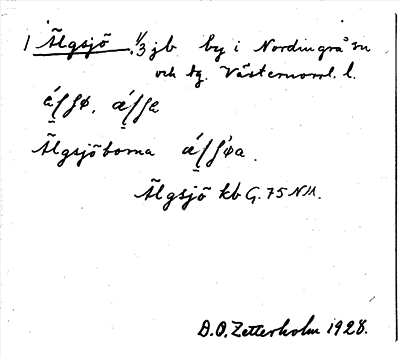 1 Älgsjö. 1/3 jb by i Nordingrå sn
och tg. Västernorrl. l.
Älgsjöborna
Älgsjö kb G. 75 NM.
D.O. Zetterholm 1928.